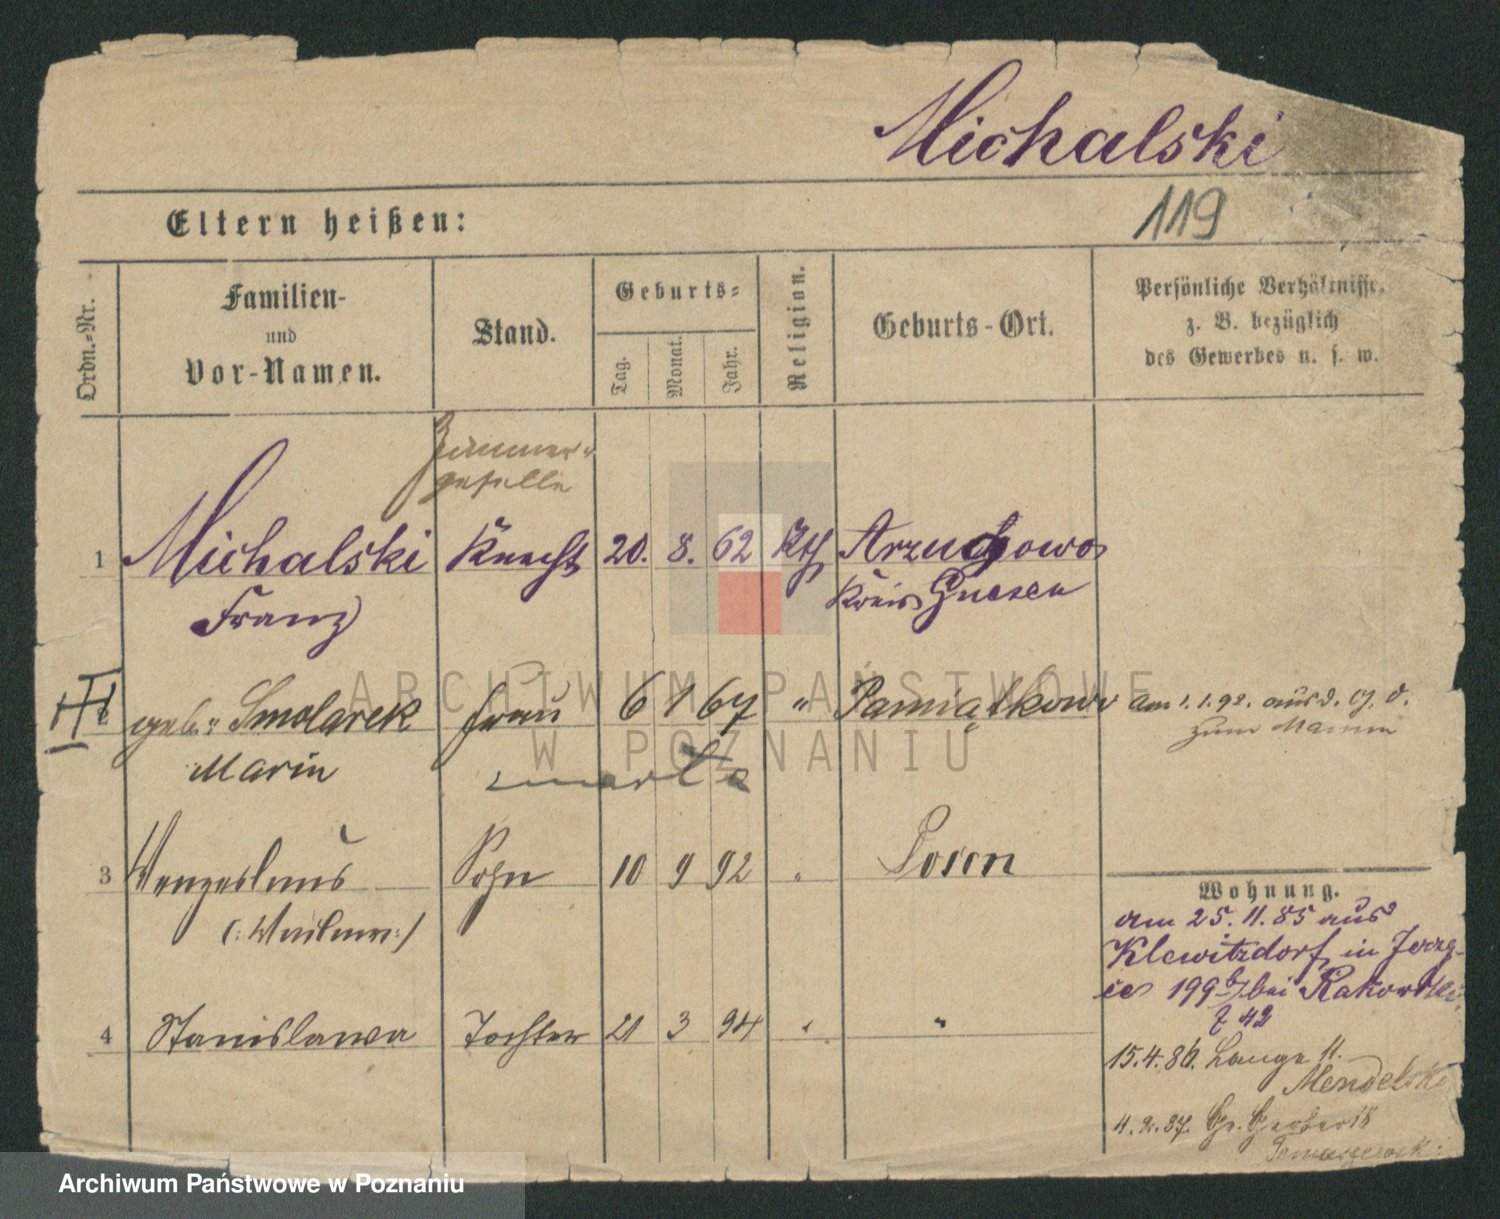 Michalski
119
Eltern heißen:
Ordn.-Nr.
Familien-
und
Vor-Namen.
Stand.
Geburts-
Tag.
Monat.
Jahr.
Religion.
Geburts-Ort.
Persönliche Verhältnisse.
z. B. bezüglich
des Gewerbes u. s. w.
Zimmer-
geselle
1 Michalski Knecht 20. 8. 62 Kth Arzugowo
Franz Kreis Gnesen
geb. Smolarek Frau 6 1 67 " Pamiątkowo am 1.1.92. aus d. O. d.
Marie zum Mann
3 Wenzeslaus Sohn 10 9 92 " Posen
4 Stanislawa Tochter 21 3 94 " "
Wohnung.
am 25.11.85 aus
Klewitzdorf in Jerzy-
ce 199 b/ bei Rakowski
Z 42
15.4.86. Lange 11.
Mendelsk
4.2.87. Gr. Gerber 18
Tomaszewsk
ARCHIWUM PAŃSTWOWE
W POZNANIU
Archiwum Państwowe w Poznaniu